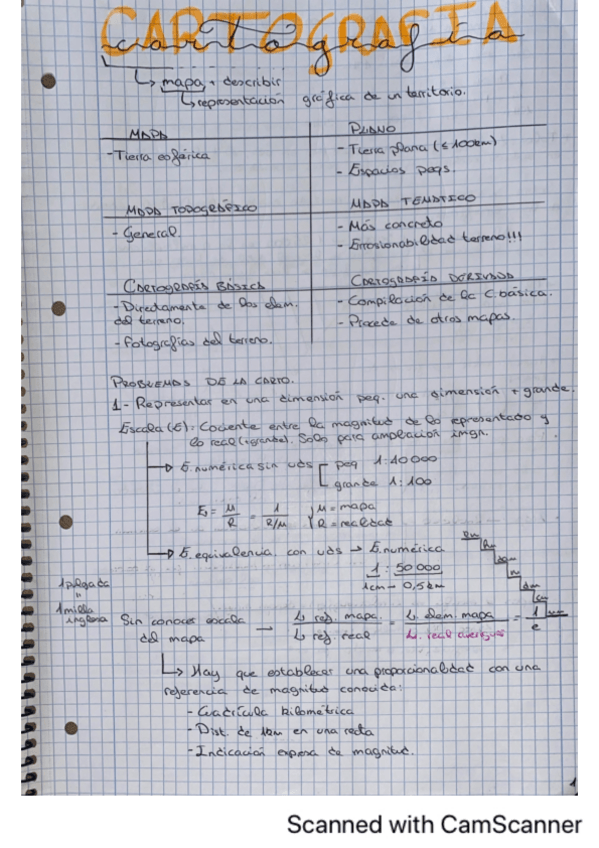 CARTOGRAFIA
cartografia
↳ mapa + describir
↳ representación gráfica de un territorio.
MAPA
- Tierra esférica
PLANO
- Tierra plana (≤100km)
- Espacios peqs.
MAPA TOPOGRÁFICO
- General.
MAPA TEMÁTICO
- Más concreto
- Errosionabilidad terreno!!!
CARTOGRAFÍA BÁSICA
- Directamente de los elem.
del terreno.
- Fotografías del terreno.
CARTOGRAFÍA DERIVADA
- Compilación de la C básica.
- Procede de otros mapas.
PROBLEMAS DE LA CARTO.
1 - Representar en una dimensión peq. una dimensión + grande.
Escala (E): Cociente entre la magnitud de lo representado y
lo real (+grande). Solo para ampliación imgn.
→ E. numérica sin uds
peq 1:10000
grande 1:100
E = M/R = 1/R/M
M = mapa
R = realidad
→ E. equivalencia con uds → E. numérica
1 : 50 000
1cm - 0,5 km
km
hm
dam
m
dm
cm
1 pulgada
=
1 milla
inglesa
Sin conocer escala
del mapa
→ L ref. mapa / L ref. real = L. elem. mapa / L. real averiguar = 1 / e
↳ Hay que establecer una proporcionalidad con una
referencia de magnitud conocida:
- Cuadrícula kilométrica
- Dist. de 1km en una recta
- Indicación expresa de magnitud.
1
Scanned with CamScanner